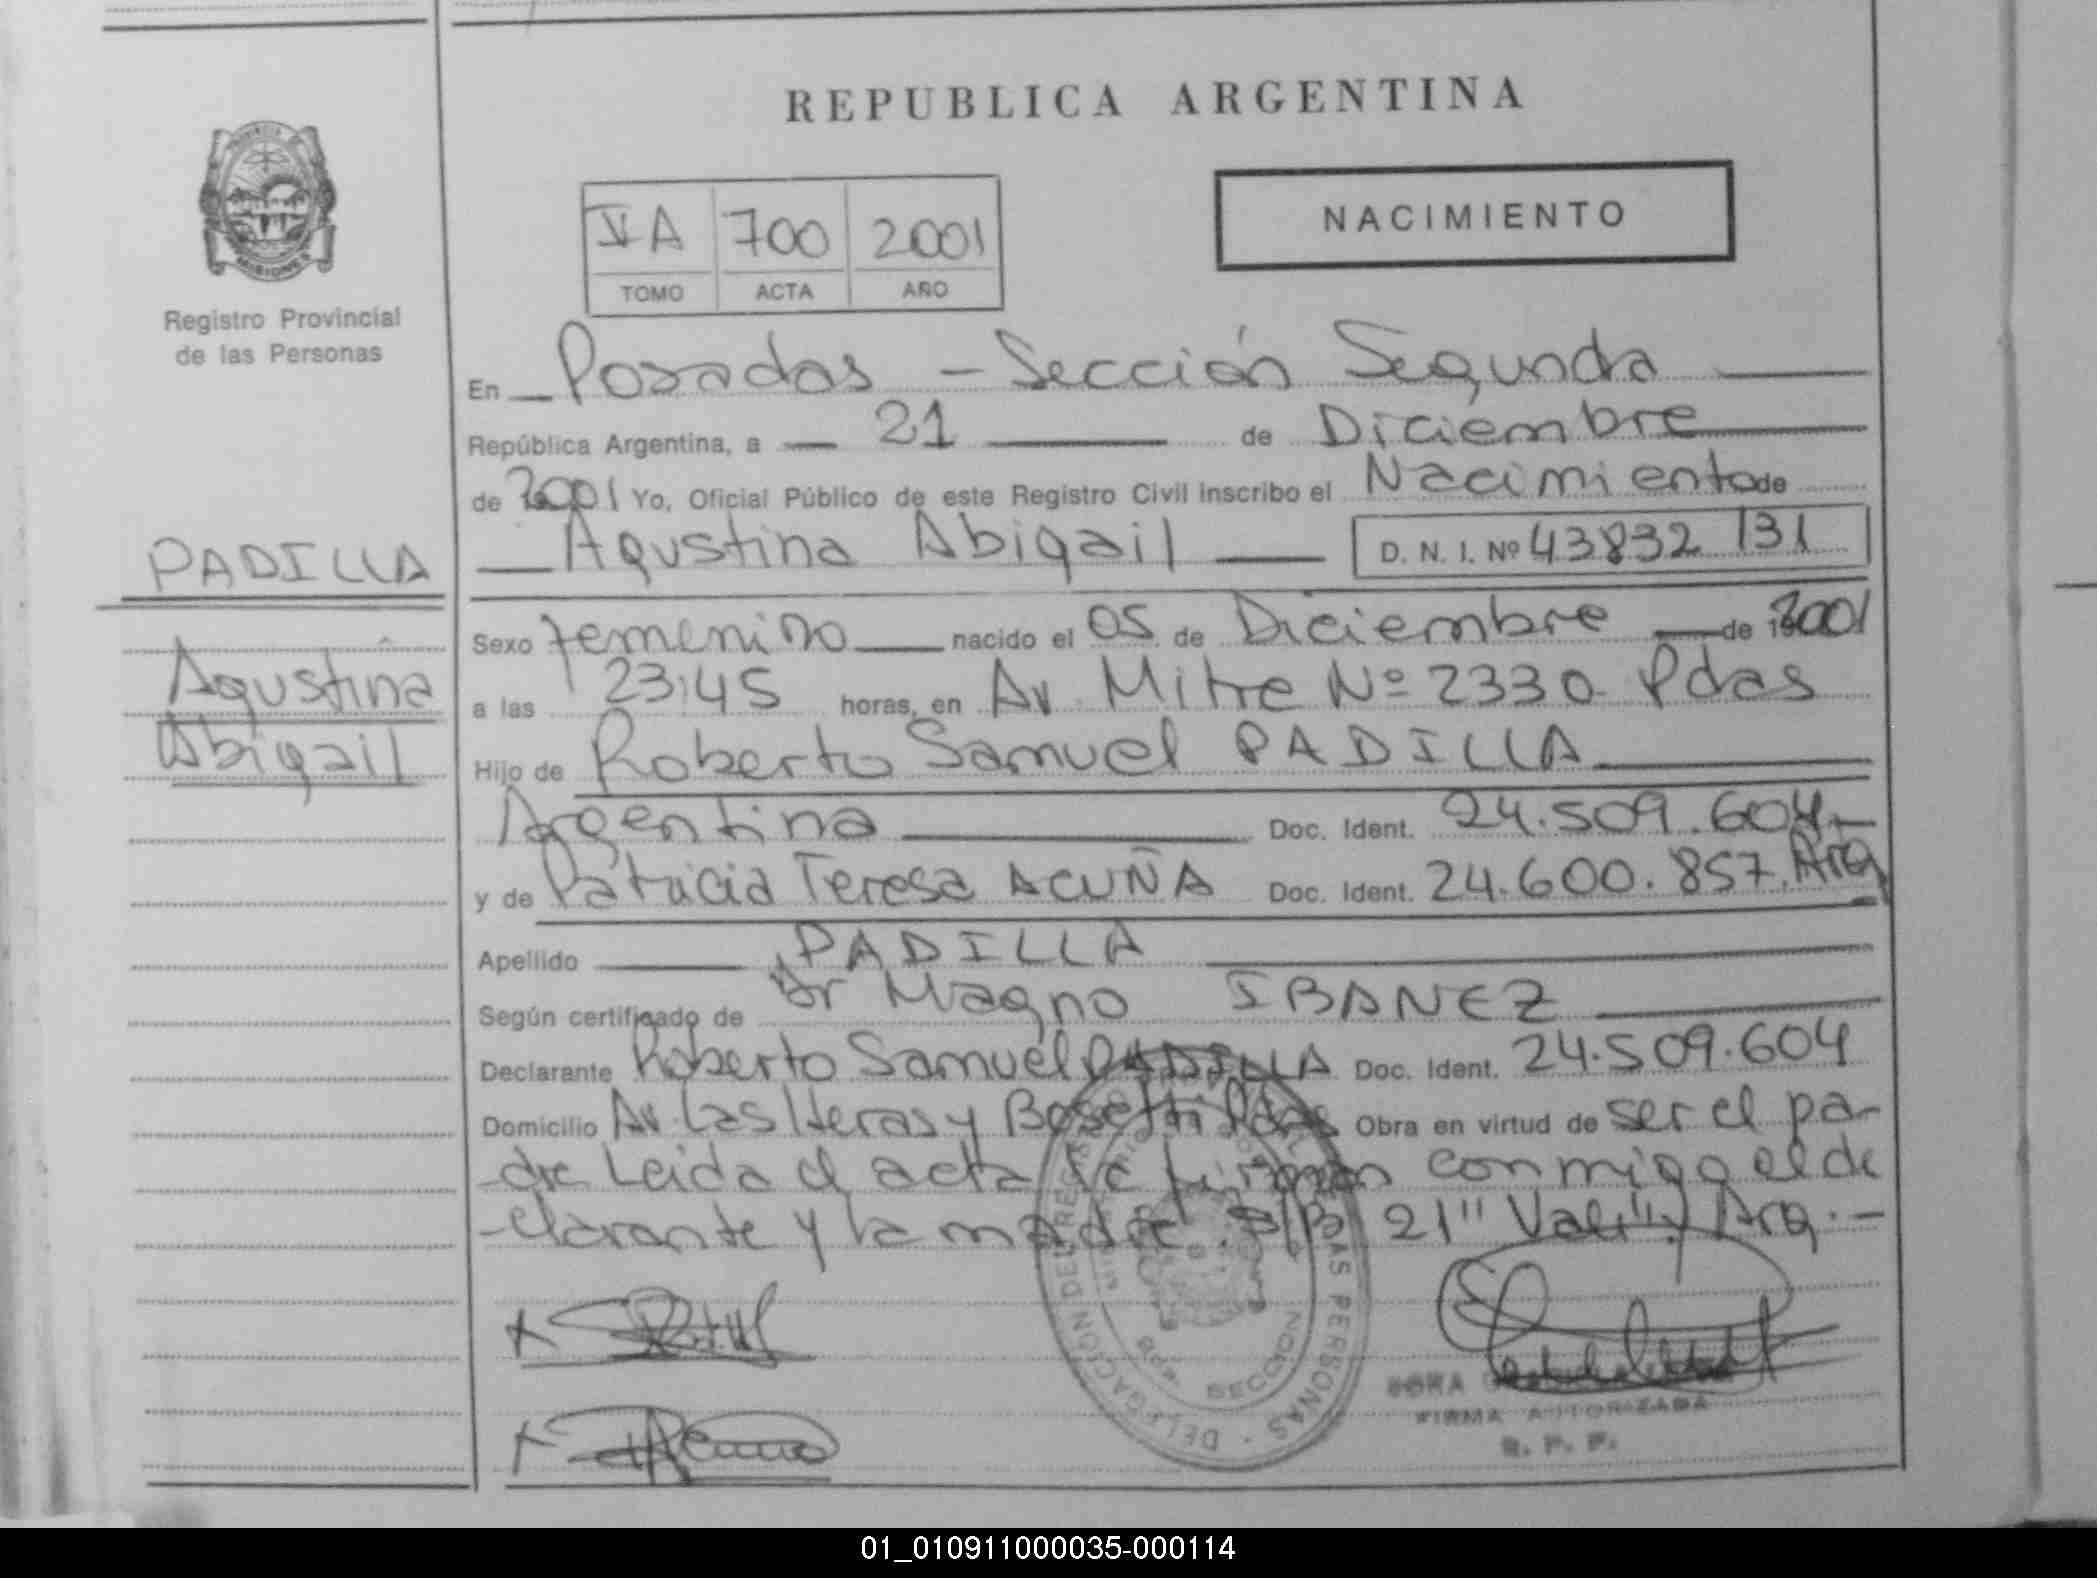 REPUBLICA ARGENTINA
PROVINCIA
MISIONES
Registro Provincial
de las Personas
VA 700 2001
TOMO ACTA AÑO
NACIMIENTO
En Posadas - Sección Segunda
República Argentina, a 21 de Diciembre
de 2001 Yo, Oficial Público de este Registro Civil inscribo el Nacimiento de
PADILLA
Agustina Abigail D. N. I. Nº 43832 131
Sexo femenino nacido el 05 de Diciembre de 2001
Agustina
a las 23:45 horas, en Av. Mitre Nº 2330 Pdas
Abigail
Hijo de Roberto Samuel PADILLA
Argentina Doc. Ident. 24.509.604-
y de Patricia Teresa ACUÑA Doc. Ident. 24.600.857. Arg
Apellido PADILLA
Según certificado de Dr Magno IBANEZ
Declarante Roberto Samuel PADILLA Doc. Ident. 24.509.604
Domicilio Av. Las Heras y Bosetti Pdas Obra en virtud de ser el pa-
-dre Leida el acta la firman conmigo el de
-clarante y la madre. 21" Vale". Arg.-
DELEGACION DEL REGISTRO DE LAS PERSONAS
SECCION
FIRMA AUTORIZADA
R. P. P.
01_010911000035-000114